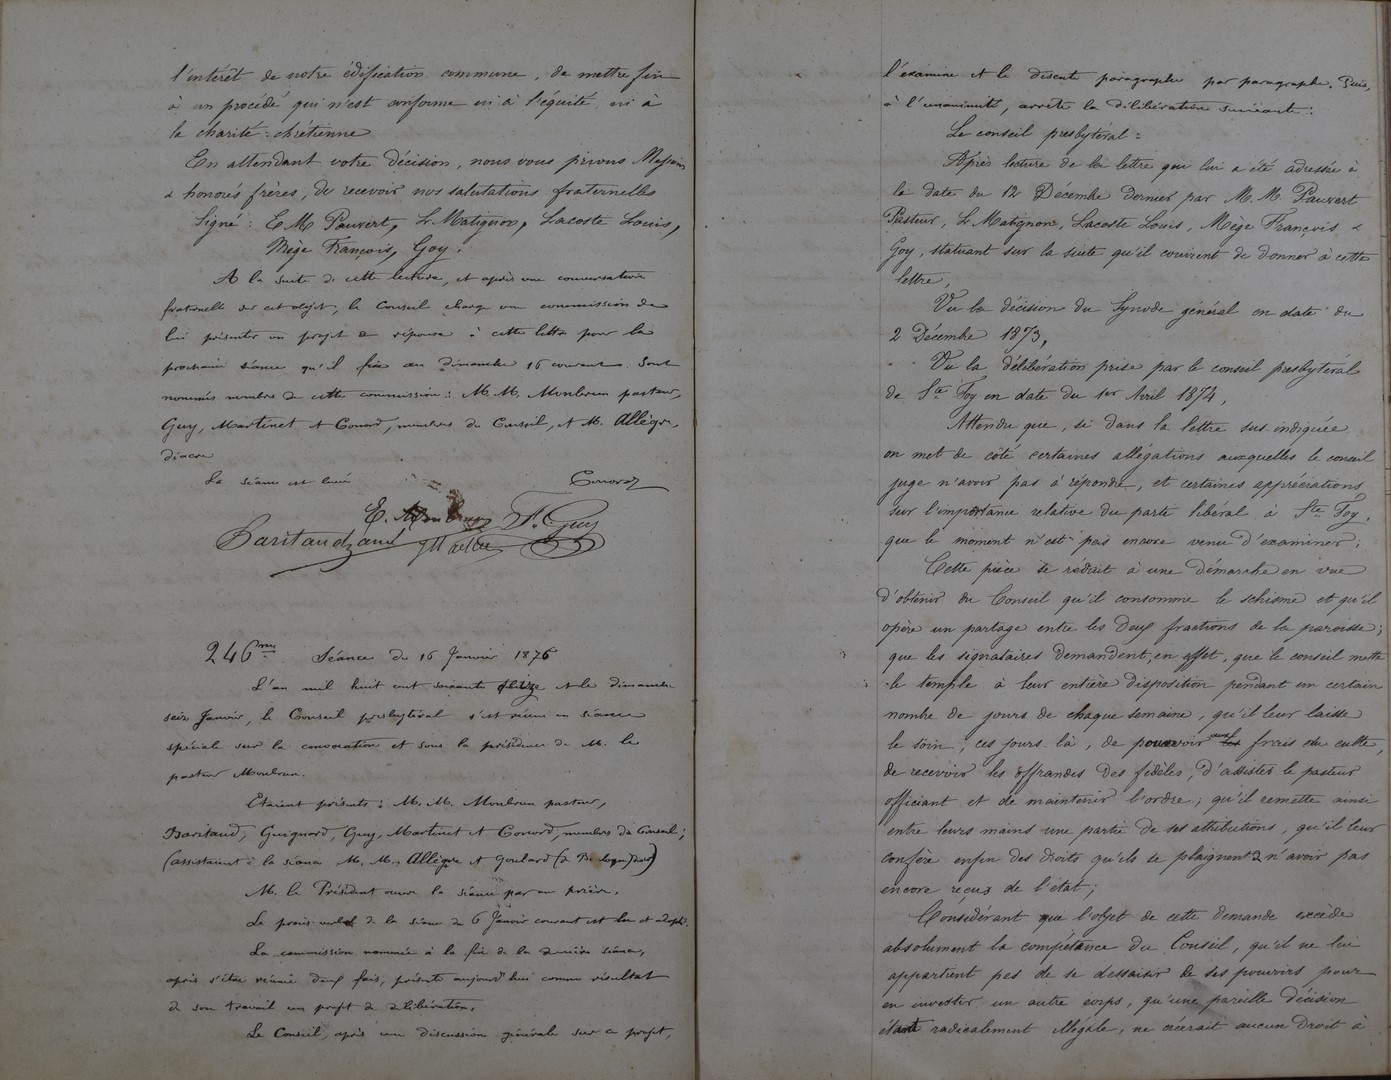 l'intérêt de notre édification commune, de mettre fin
à un procédé qui n'est conforme ni à l'équité ni à
la charité chrétienne
En attendant votre décision, nous vous prions Messieurs
& honorés frères, de recevoir nos salutations fraternelles
Signé : E M Pauvert, L. Matignon, Lacoste Louis,
Mège François, Goy.
A la suite de cette lecture, et après une conversation
fraternelle sur cet objet, le Conseil charge une commission de
lui présenter un projet de réponse à cette lettre pour la
prochaine séance qu'il fixe au dimanche 16 courant. Sont
nommés membres de cette commission : M. M. Monbrun pasteur,
Guy, Martinet et Conord, membres du Conseil, et M. Allègre,
diacre
La séance est levée
Conord
E. Monbrun F. Guy
Baritaud
246me Séance du 16 Janvier 1876
L'an mil huit cent soixante seize et le dimanche
seize Janvier, le Conseil presbytéral s'est réuni en séance
spéciale sur la convocation et sous la présidence de M. le
pasteur Monbrun.
Etaient présents : M. M. Monbrun pasteur,
Baritaud, Guignard, Guy, Martinet et Conord, membres du Conseil ;
(assistaient à la séance M. M. Allègre et Goulard
M. le Président ouvre la séance par une prière.
Le procès-verbal de la séance du 6 Janvier courant est lu et adopté.
La commission nommée à la fin de la dernière séance,
après s'être réunie deux fois, présente aujourd'hui comme résultat
de son travail un projet de délibération.
Le Conseil, après une discussion générale sur ce projet,
l'examine et le discute paragraphe par paragraphe. Puis,
à l'unanimité, arrête la délibération suivante :
Le conseil presbytéral :
Après lecture de la lettre qui lui a été adressée à
la date du 12 Décembre dernier par M. M. Pauvert
Pasteur, L. Matignon, Lacoste Louis, Mège François &
Goy, statuant sur la suite qu'il convient de donner à cette
lettre,
Vu la décision du Synode général en date du
2 Décembre 1873,
Vu la délibération prise par le conseil presbytéral
de Ste Foy en date du 1er Avril 1874,
Attendu que, si dans la lettre sus-indiquée
on met de côté certaines allégations auxquelles le conseil
juge n'avoir pas à répondre, et certaines appréciations
sur l'importance relative du parti libéral à Ste Foy,
que le moment n'est pas encore venu d'examiner ;
Cette pièce se réduit à une démarche en vue
d'obtenir du Conseil qu'il consomme le schisme et qu'il
opère un partage entre les deux fractions de la paroisse ;
que les signataires demandent, en effet, que le conseil mette
le temple à leur entière disposition pendant un certain
nombre de jours de chaque semaine, qu'il leur laisse
le soin, ces jours-là, de pourvoir aux frais du culte,
de recevoir les offrandes des fidèles, d'assister le pasteur
officiant et de maintenir l'ordre ; qu'il remette ainsi
entre leurs mains une partie de ses attributions, qu'il leur
confère enfin des droits qu'ils se plaignent de n'avoir pas
encore reçus de l'état ;
Considérant que l'objet de cette demande excède
absolument la compétence du Conseil, qu'il ne lui
appartient pas de se dessaisir de ses pouvoirs pour
en investir un autre corps, qu'une pareille décision
étant radicalement illégale, ne créerait aucun droit à